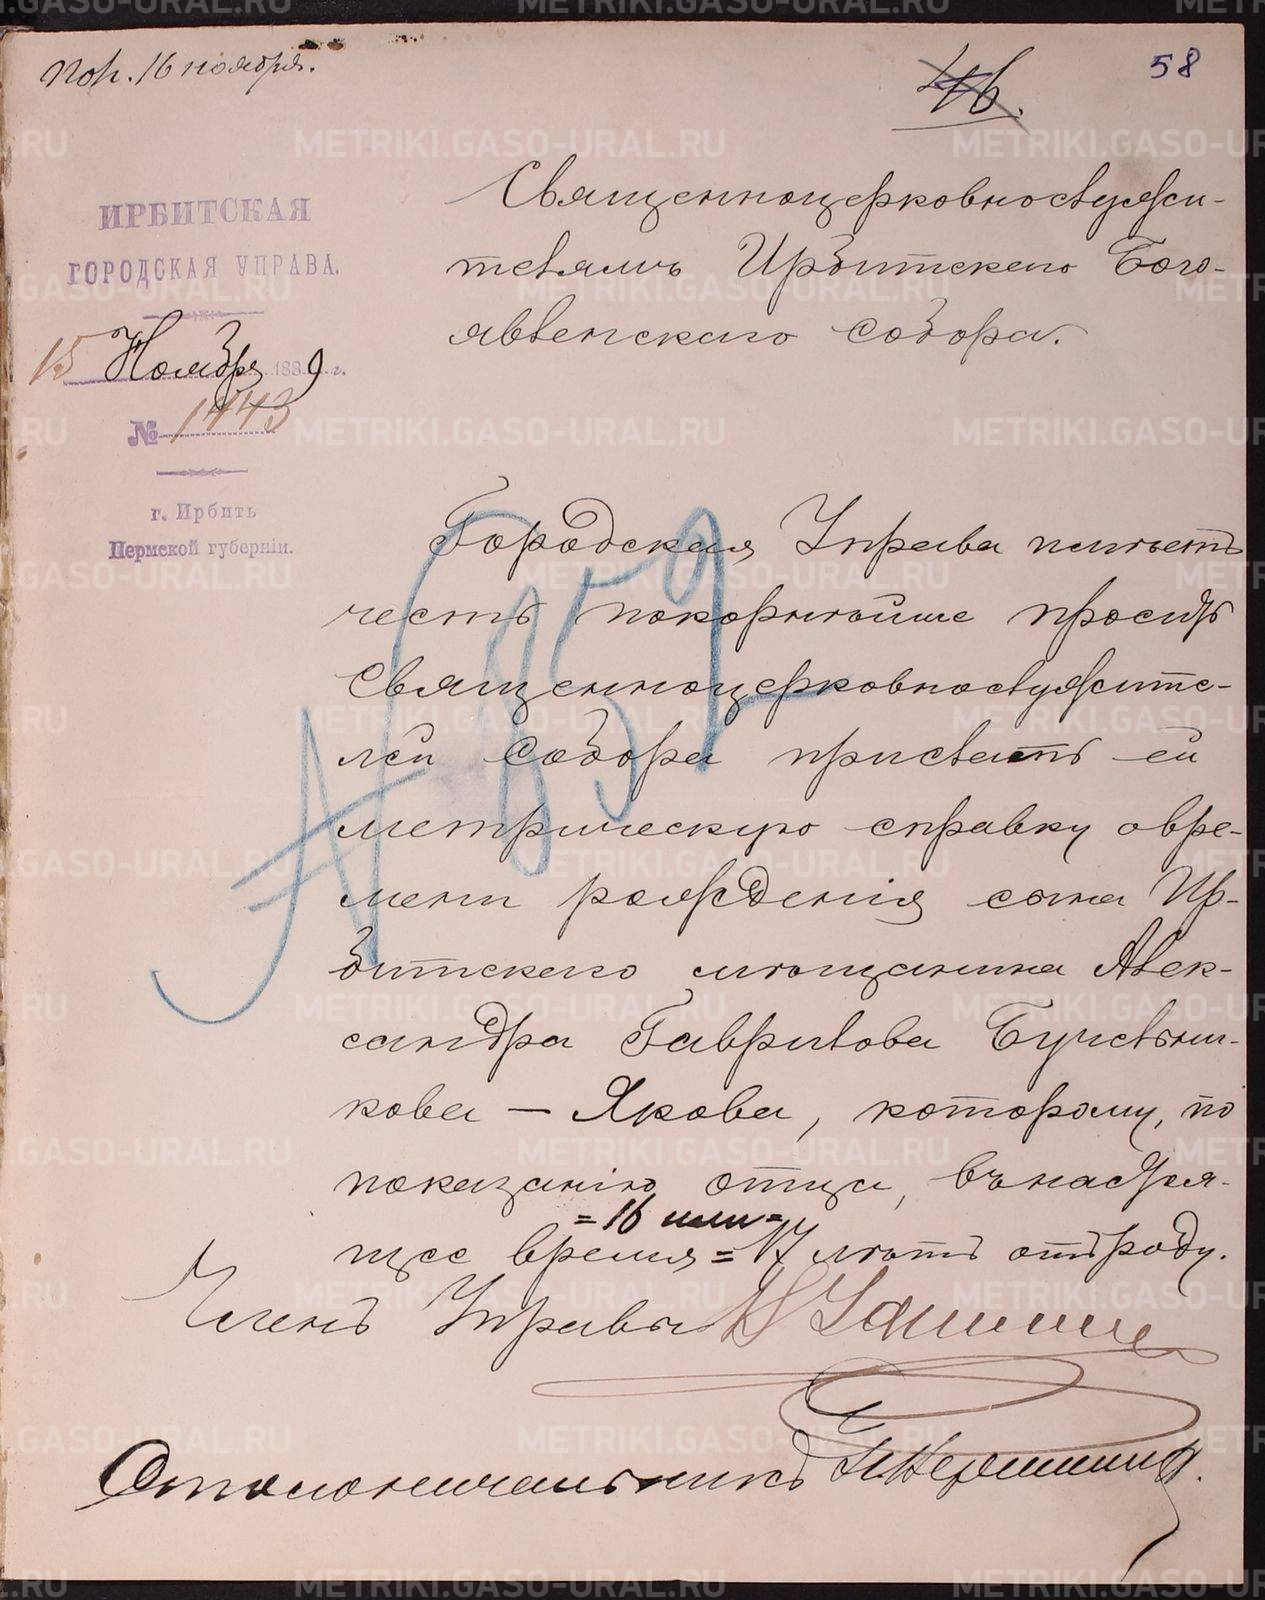 Пол. 16 ноября.
46.
58
ИРБИТСКАЯ
ГОРОДСКАЯ УПРАВА.
15 Ноября 1889 г.
№ 1443
г. Ирбить
Пермской губерніи.
Священноцерковнослужи-
телямъ Ирбитскаго Бого-
явленскаго собора.
№ 859
Городская Управа имѣетъ
честь покорнѣйше просить
Священноцерковнослужите-
лей Собора прислать ей
метрическую справку о вре-
мени рожденія сына Ир-
битскаго мѣщанина Алек-
сандра Гаврилова Бучельни-
кова — Якова, которому, по
показанію отца, въ настоя-
=16 или=
щее время = 17 лѣтъ отъ роду.
Членъ Управы
Столоначальникъ
METRIKI.GASO-URAL.RU